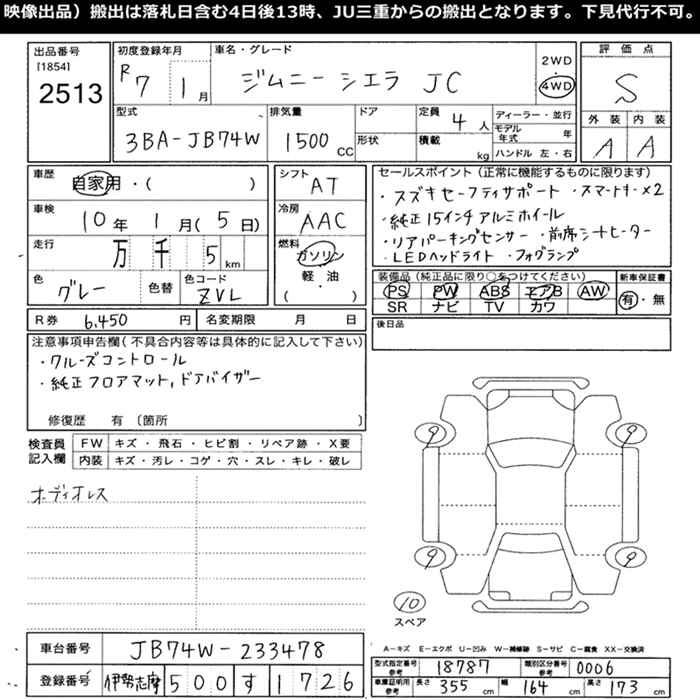 映像出品）搬出は落札日含む4日後13時、JU三重からの搬出となります。下見代行不可。
出品番号
[1854]
2513
初度登録年月
R7 1月
車名・グレード
ジムニーシエラ JC
2WD
・
4WD
評価点
S
外装 内装
A A
型式
3BA-JB74W
排気量
1500 CC
ドア
形状
定員 4人
積載 kg
ディーラー・並行
モデル年式 年
ハンドル 左・右
車歴
自家用・( )
車検
10年 1月(5日)
走行
万 千 5 km
色
グレー
色替
色コード
ZVL
シフト
AT
冷房
AAC
燃料
ガソリン
軽・油
( )
セールスポイント（正常に機能するものに限ります）
・スズキセーフティサポート ・スマートキー×2
・純正15インチアルミホイール
・リアパーキングセンサー ・前席シートヒーター
・LEDヘッドライト ・フォグランプ
装備品（純正品に限り○をつけてください）
PS PW ABS エアB AW
SR ナビ TV カワ
新車保証書
有・無
R券 6,450 円
名変期限 月 日
後日品
注意事項申告欄（不具合内容等は具体的に記入して下さい）
・クルーズコントロール
・純正フロアマット,ドアバイザー
修復歴 有〔箇所 〕
検査員
記入欄
FW キズ・飛石・ヒビ割・リペア跡・X要
内装 キズ・汚レ・コゲ・穴・スレ・キレ・破レ
オーディオレス
9 9
9 9
10
スペア
車台番号 JB74W-233478
登録番号 伊勢志摩 500 す 1726
A－キズ E－エクボ U－凹み W－補修跡 S－サビ C－腐食 XX－交換済
型式指定番号 参考 18787 類別区分番号 参考 0006
車庫証明用 参考 長さ 355 cm 幅 164 cm 高さ 173 cm